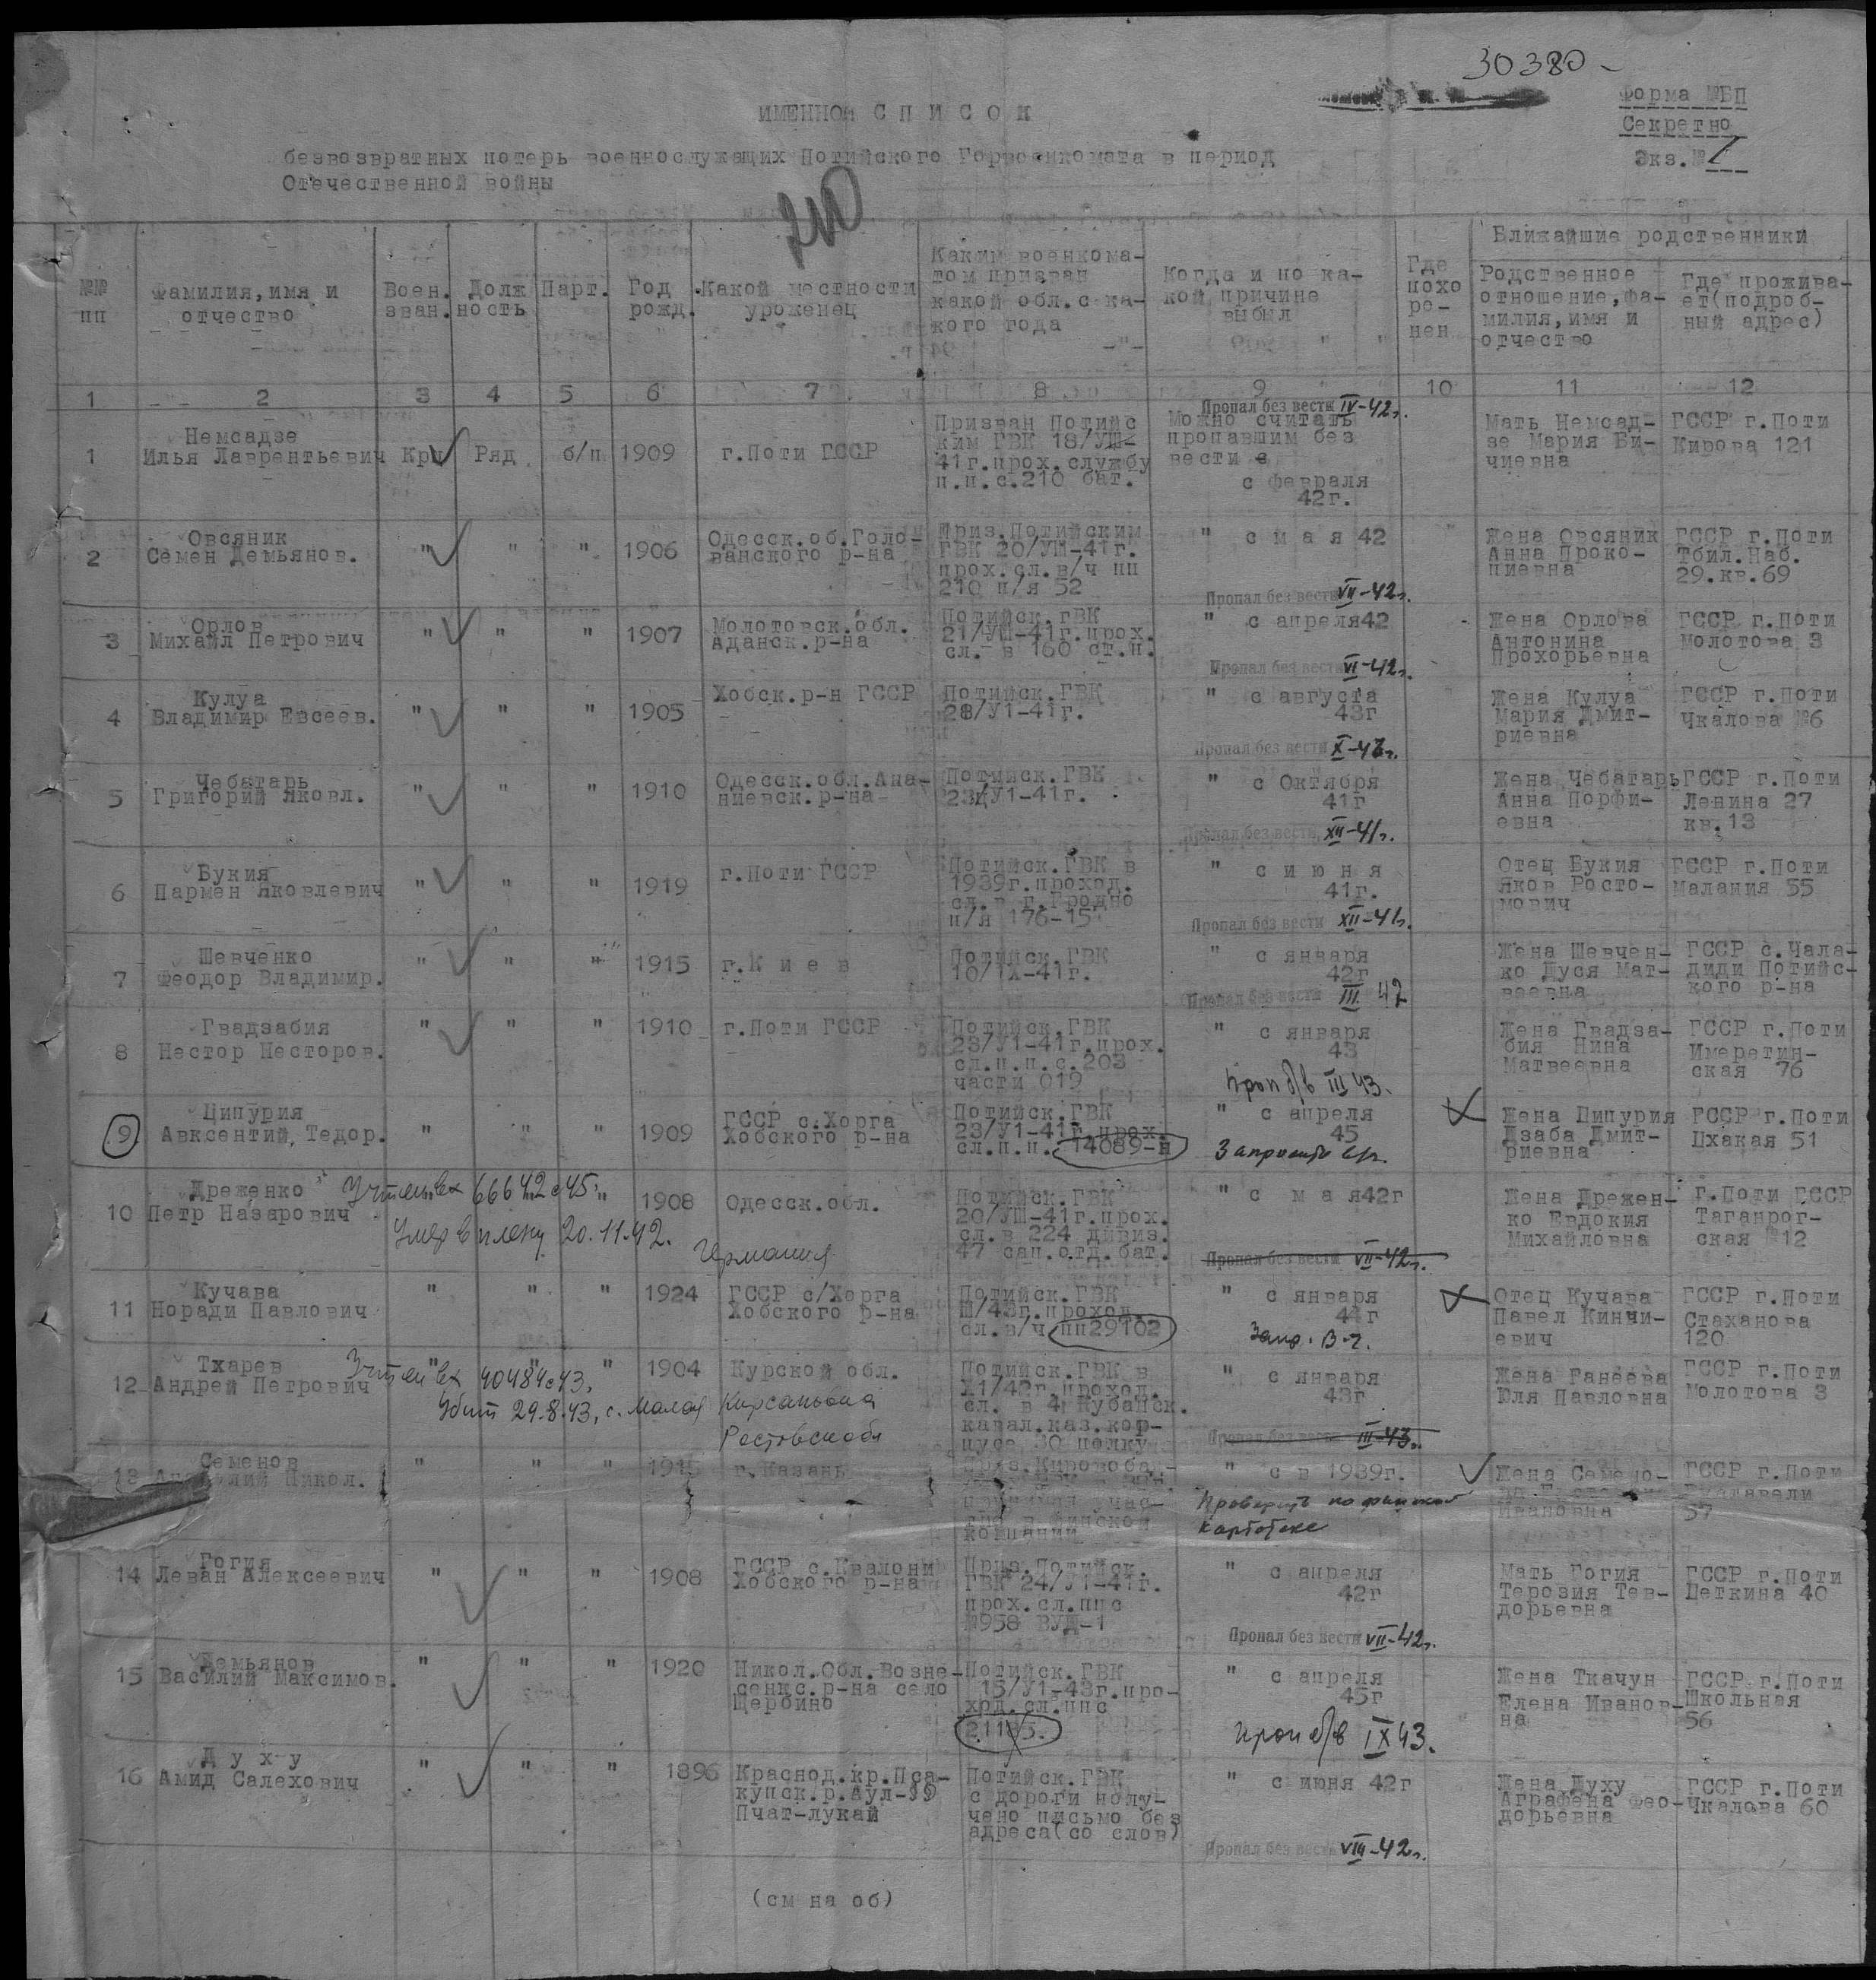 30380 -
Форма №БП
Секретно
Экз.№ 1
ИМЕННОЙ С П И С О К
безвозвратных потерь военнослужащих Потийского Горвоенкомата в период
Отечественной войны
210
№№
пп
Фамилия,имя и
отчество
Воен.
зван.
Долж
ность
Парт.
Год
рожд.
Какой местности
уроженец
Каким военкома-
том призван
какой обл.с ка-
кого года
Когда и по ка-
кой причине
выбыл
Где
похо
ро-
нен
Ближайшие родственники
Родственное
отношение,фа-
милия,имя и
отчество
Где прожива-
ет(подроб-
ный адрес)
1 2 3 4 5 6 7 8 9 10 11 12
1
Немсадзе
Илья Лаврентьевич
Кр
Ряд
б/п
1909
г.Поти ГССР
Призван Потийс
ким ГВК 18/УШ-
41г.прох.службу
п.п.с.210 бат.
Пропал без вести IV-42г.
Можно считать
пропавшим без
вести с
с февраля
42г.
Мать Немсад-
зе Мария Би-
чиевна
ГССР г.Поти
Кирова 121
2
Овсяник
Семен Демьянов.
" " "
1906
Одесск.об.Голо-
ванского р-на
Приз.Потийским
ГВК 20/УШ-41г.
прох.сл.в/ч пп
210 п/я 52
" с м а я 42
Пропал без вести VII-42г.
Жена Овсяник
Анна Проко-
пиевна
ГССР г.Поти
Тбил.Наб.
29.кв.69
3
Орлов
Михаил Петрович
" " "
1907
Молотовск.обл.
Аданск.р-на
Потийск.ГВК
21/УШ-41г.прох.
сл. в 160 ст.п.
" с апреля42
Пропал без вести VI-42г.
Жена Орлова
Антонина
Прохорьевна
ГССР г.Поти
Молотова 3
4
Кулуа
Владимир Евсеев.
" " "
1905
Хобск.р-н ГССР
Потийск.ГВК
28/У1-41г.
" с августа
43г
Пропал без вести X-43г.
Жена Кулуа
Мария Дмит-
риевна
ГССР г.Поти
Чкалова №6
5
Чебатарь
Григорий Яковл.
" " "
1910
Одесск.обл.Ана-
ниевск.р-на
Потийск.ГВК
23/У1-41г.
" с Октября
41г
Пропал без вести XII-41г.
Жена Чебатарь
Анна Порфи-
евна
ГССР г.Поти
Ленина 27
кв.13
6
Букия
Пармен Яковлевич
" " "
1919
г.Поти ГССР
Потийск.ГВК в
1939г.проход.
сл.в г.Гродно
п/я 176-15
" с и ю н я
41г.
Пропал без вести XII-41г.
Отец Букия
Яков Росто-
мович
ГССР г.Поти
Малания 55
7
Шевченко
Феодор Владимир.
" " "
1915
г.К и е в
Потийск.ГВК
10/1Х-41г.
" с января
42г
Пропал без вести III 42
Жена Шевчен-
ко Дуся Мат-
веевна
ГССР с.Чала-
диди Потийс-
кого р-на
8
Гвадзабия
Нестор Несторов.
" " "
1910
г.Поти ГССР
Потийск.ГВК
23/У1-41г.прох.
сл.п.п.с.203
части 019
" с января
43
Проп б/в III 43.
Жена Гвадза-
бия Нина
Матвеевна
ГССР г.Поти
Имеретин-
ская 76
9
Ципурия
Авксентий,Тедор.
" " "
1909
ГССР с.Хорга
Хобского р-на
Потийск.ГВК
23/У1-41г.прох.
сл.п.п. 14089-н
" с апреля
45
Жена Ципурия
Дзаба Дмит-
риевна
ГССР г.Поти
Цхакая 51
10
Дреженко
Петр Назарович
Учтен вх 66642с45.
Умер в плену 20.11.42.
Германия
"
1908
Одесск.обл.
Потийск.ГВК
20/УШ-41г.прох.
сл.в 224 дивиз.
47 сап.отд.бат.
" с м а я42г
Пропал без вести VII-42г.
Жена Дрежен-
ко Евдокия
Михайловна
г.Поти ГССР
Таганрог-
ская №12
11
Кучава
Норади Павлович
" " "
1924
ГССР с/Хорга
Хобского р-на
Потийск.ГВК
Ш/43г.проход.
сл.в/ч пп29102
" с января
44г
Запр. В.ч.
Отец Кучава
Павел Кинчи-
евич
ГССР г.Поти
Стаханова
120
12
Тхарев
Андрей Петрович
Учтен вх 40484с43.
Убит 29.8.43, с. Малая Кирсановка
Ростовск обл
" " "
1904
Курской обл.
Потийск.ГВК в
Х1/42г.проход.
сл. в 4 Кубанск.
кавал.каз.кор-
пусе 30 полку
" с января
43г
Пропал без вести III-43г.
Жена Ганеева
Юля Павловна
ГССР г.Поти
Молотова 3
13
Семенов
Никол.
" " "
1915
г.Казань
финской
компании
" с в 1939г.
Проверить по финской
картотеке
Жена Семено-
Ивановна
ГССР г.Поти
Руставели
57
14
Гогия
Леван Алексеевич
" " "
1908
ГССР с.Квалони
Хобского р-на
Приз.Потийск.
ГВК 24/У1-41г.
прох.сл.ппс
№958 ВУД-1
" с апреля
42г
Пропал без вести VII-42г.
Мать Гогия
Терозия Тев-
дорьевна
ГССР г.Поти
Цеткина 40
15
Демьянов
Василий Максимов.
" " "
1920
Никол.Обл.Возне-
сенкс.р-на село
Щербино
Потийск.ГВК
15/У1-43г.про-
ход.сл.ппс
21185.
" с апреля
45г
Проп б/в IX 43.
Жена Ткачун
Елена Иванов-
на
ГССР г.Поти
Школьная
56
16
Д у х у
Амид Салехович
" " "
1896
Краснод.кр.Пса-
купск.р.Аул-99
Пчат-лукай
Потийск.ГВК
с дороги полу-
чено письмо без
адреса(со слов)
" с июня 42г
Пропал без вести VIII-42г.
Жена Духу
Аграфена Фео-
дорьевна
ГССР г.Поти
Чкалова 60
(см на об)